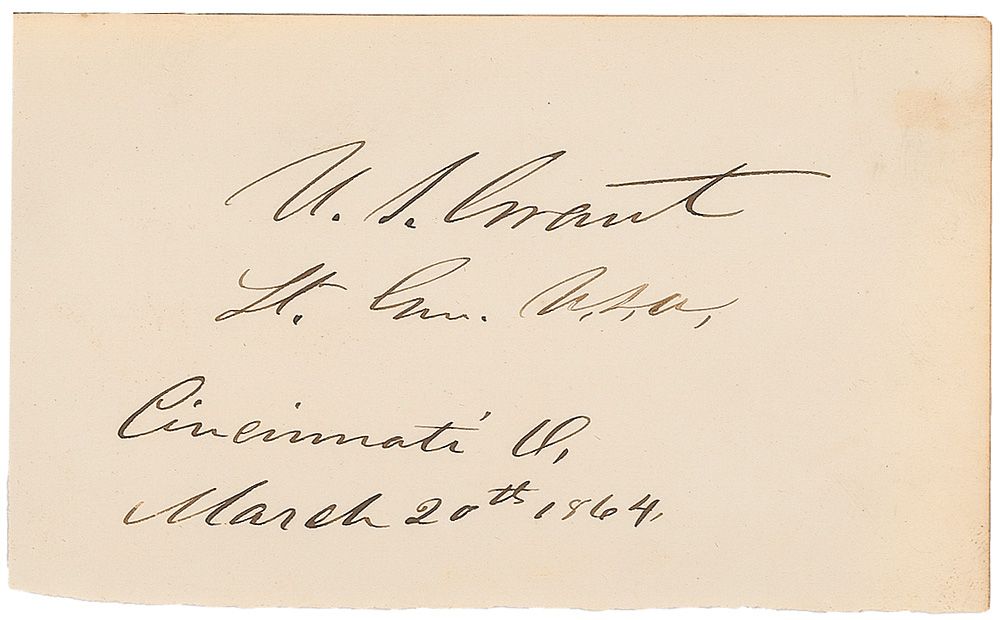 U. S. Grant
Lt. Gen. U.S.A.
Cincinnati O.
March 20th 1864.